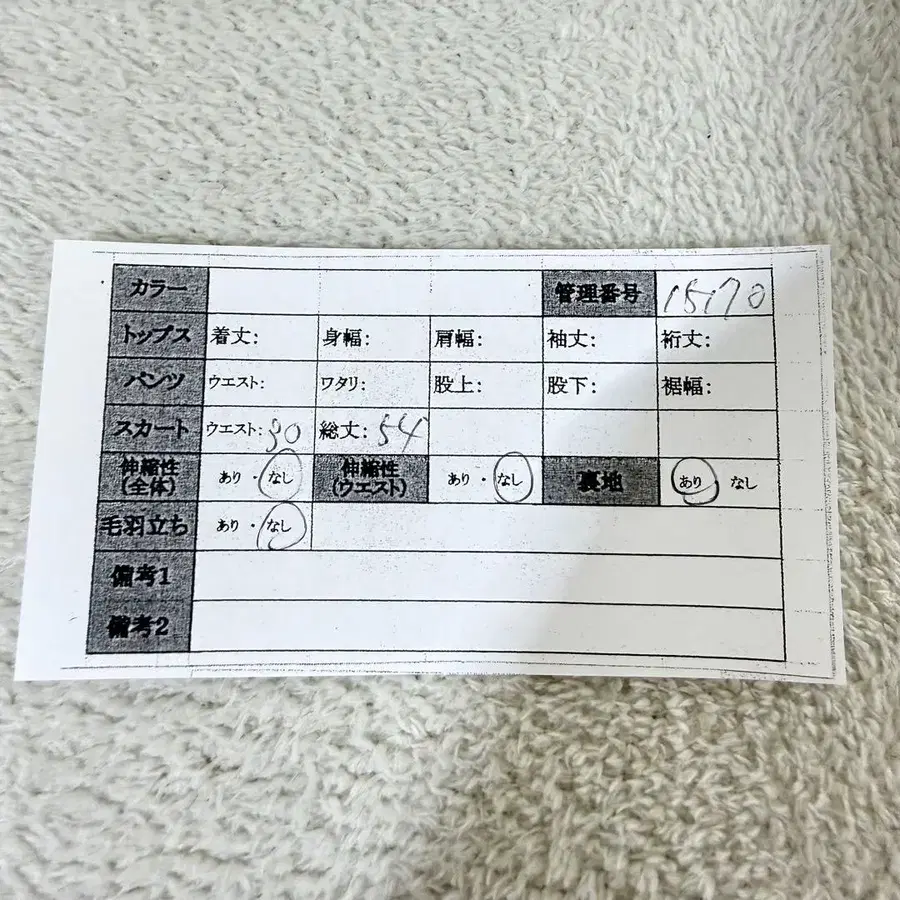 カラー 管理番号 15170
トップス 着丈: 身幅: 肩幅: 袖丈: 裄丈:
パンツ ウエスト: ワタリ: 股上: 股下: 裾幅:
スカート ウエスト: 30 総丈: 54
伸縮性(全体) あり・なし 伸縮性(ウエスト) あり・なし 裏地 あり なし
毛羽立ち あり・なし
備考1
備考2